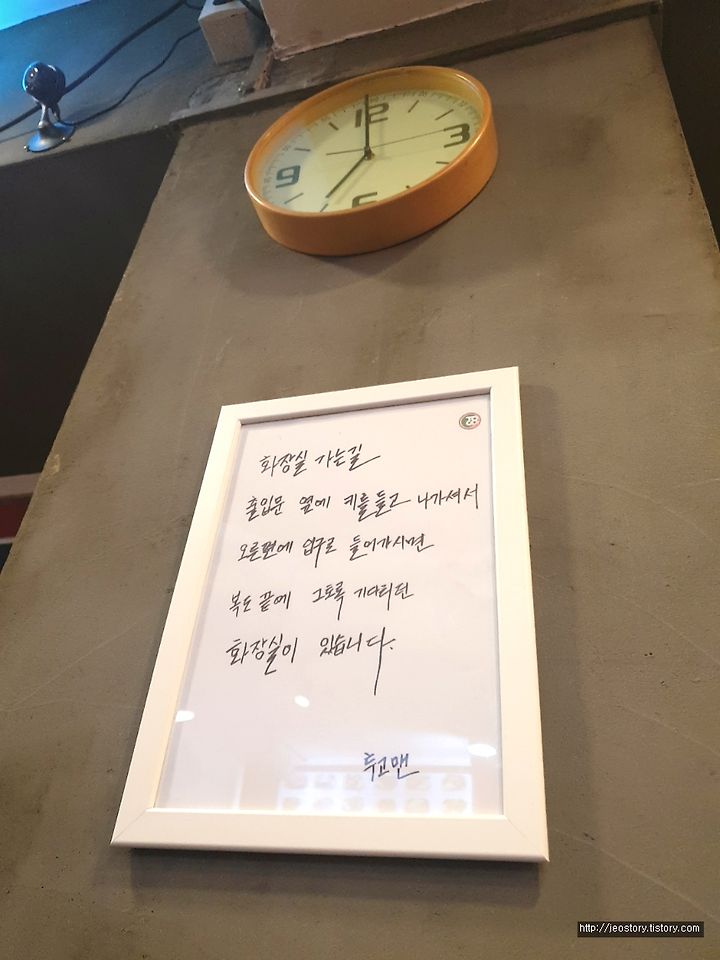 12
3
9
6
28
화장실 가는길
출입문 옆에 키를 들고 나가셔서
오른편에 입구로 들어가시면
복도 끝에 그토록 기다리던
화장실이 있습니다.
투고맨
http://jeostory.tistory.com